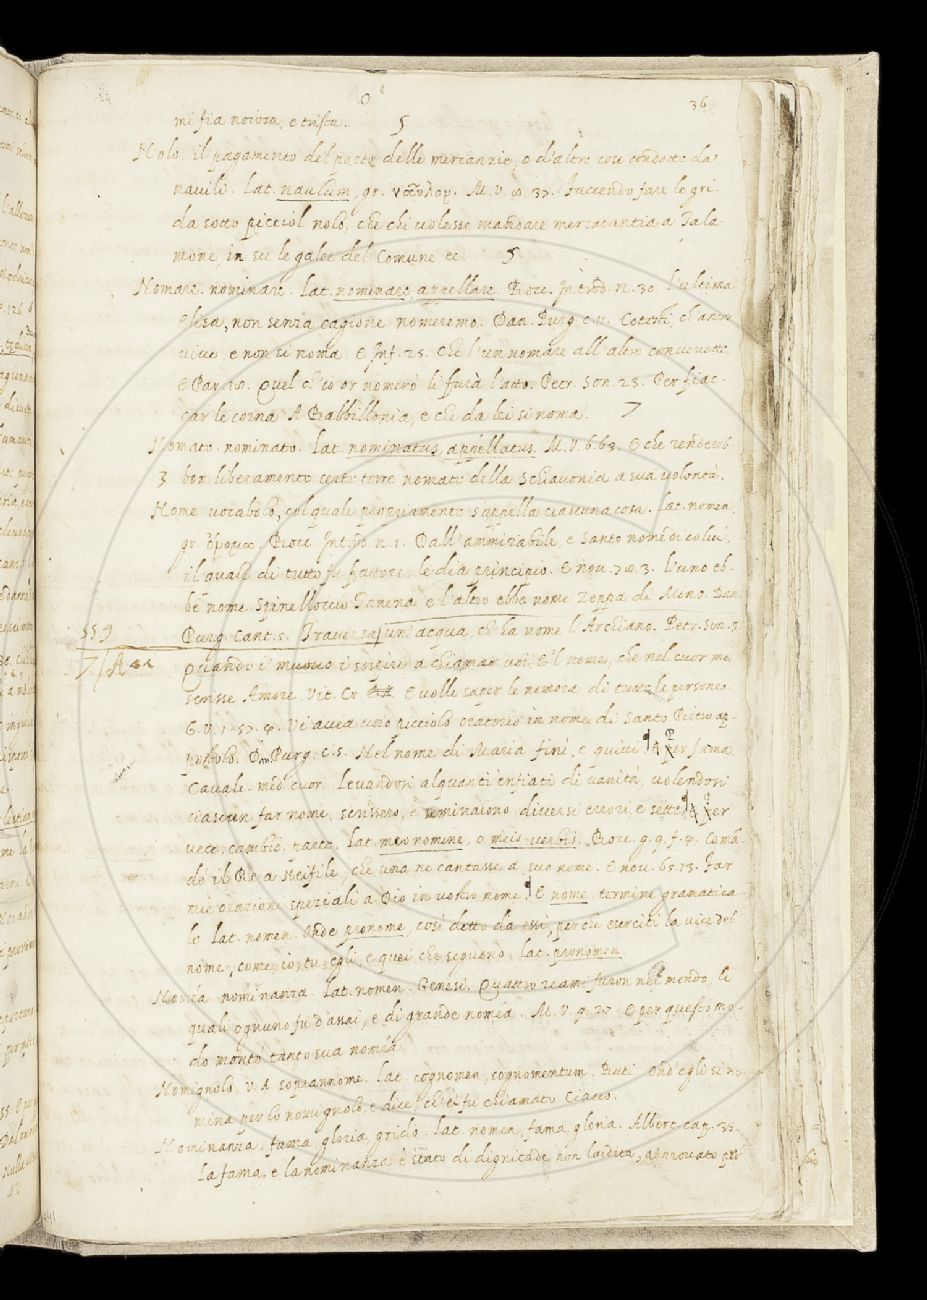 O
36
mi fia noiosa, e trista. 5
Nolo. il pagamento del porto delle mercanzie, o d'altre cose condotte da
navili. Lat. naulum, gr. M. V. 8. 37. Faccendo fare le gri-
da sotto picciol nolo, che chi volesse mandare mercatantia a Tala-
mone, in su le galee del Comune, ec. 5
Nomare. nominare. Lat. nominare, appellare. Bocc. Introd. n. 30. l'ultima
Elisa, non senza cagione nomeremo. Dan. Purg. c. 11. Cotesti, ch'ancor
vive, e non si noma. E Inf. 25. Che l'un nomare all'altro convenette.
E Par. 18. Quel ch'io or nomerò lì farà l'atto. Petr. Son. 23. Per fiac-
car le corna A Babbillonia, e chi da lei si noma. 7
Nomato. nominato. Lat. nominatus, appellatus. M. V. 6. 63. E che rendereb-
3 bon liberamente certe terre nomate della Schiavonia a sua volontà.
Nome. vocabolo, col quale propriamente s'appella ciascuna cosa. Lat. nomen,
gr. Bocc. Introd. n. 1. Dall'ammirabile, e santo nome di colui,
il quale di tutto fu fattore, le dia principio. E nov. 78. 3. l'uno eb-
be nome Spinelloccio Tanena e l'altro ebbe nome Zeppa di Mino. Dan.
559
Purg. Cant. 5. Traversa un'acqua, che ha nome l'Archiano. Petr. Son. 5.
7
Quando i' muovo i sospiri a chiamar voi, E'l nome, che nel cuor mi
scrisse Amore. Vit. Cr. E volle saper le nomora di tutte le persone.
G. V. 1. 57. 4. Vi avea uno picciolo oratorio in nome di Santo Pietro ap-
postolo. Dan. Purg. c. 5. Nel nome di Maria finì, e quivi Per fama
Cavalc. med. cuor. Levandosi alquanti enfiati di vanità, volendosi
ciascun far nome, scrissero, e seminarono diversi errori, e sette Per
vece, cambio, parte. Lat. meo nomine, o meis verbis. Bocc. g. 9. f. 4. Coman-
dò il Re a Neifile, che una ne cantasse a suo nome. E nov. 65. 13. Far
mie orazioni speziali a Dio in vostro nome. E nome termine gramatica-
le Lat. nomen. Onde pronome, così detto da essi perchè eserciti la vice del
nome, come, io, tu, egli, e quei che seguono. Lat. pronomen.
Noméa nominanza. Lat. nomen. Genesi. Quattro reami furon nel mondo, li
quali ognuno fu d'assai, e di grande noméa. M. V. 9. 27. E per questo mo-
do montò tanto sua noméa.
Nomignolo. V. A. soprannome. Lat. cognomen, cognomentum. Buti Ond'egli si no-
mina per lo nomignolo, e dice, che fu chiamato Ciacco.
Nominanza, fama, gloria, grido. Lat. nomen, fama, gloria. Albert. cap. 35.
La fama, e la nominanza è stato di dignitade non laidita, approvato per